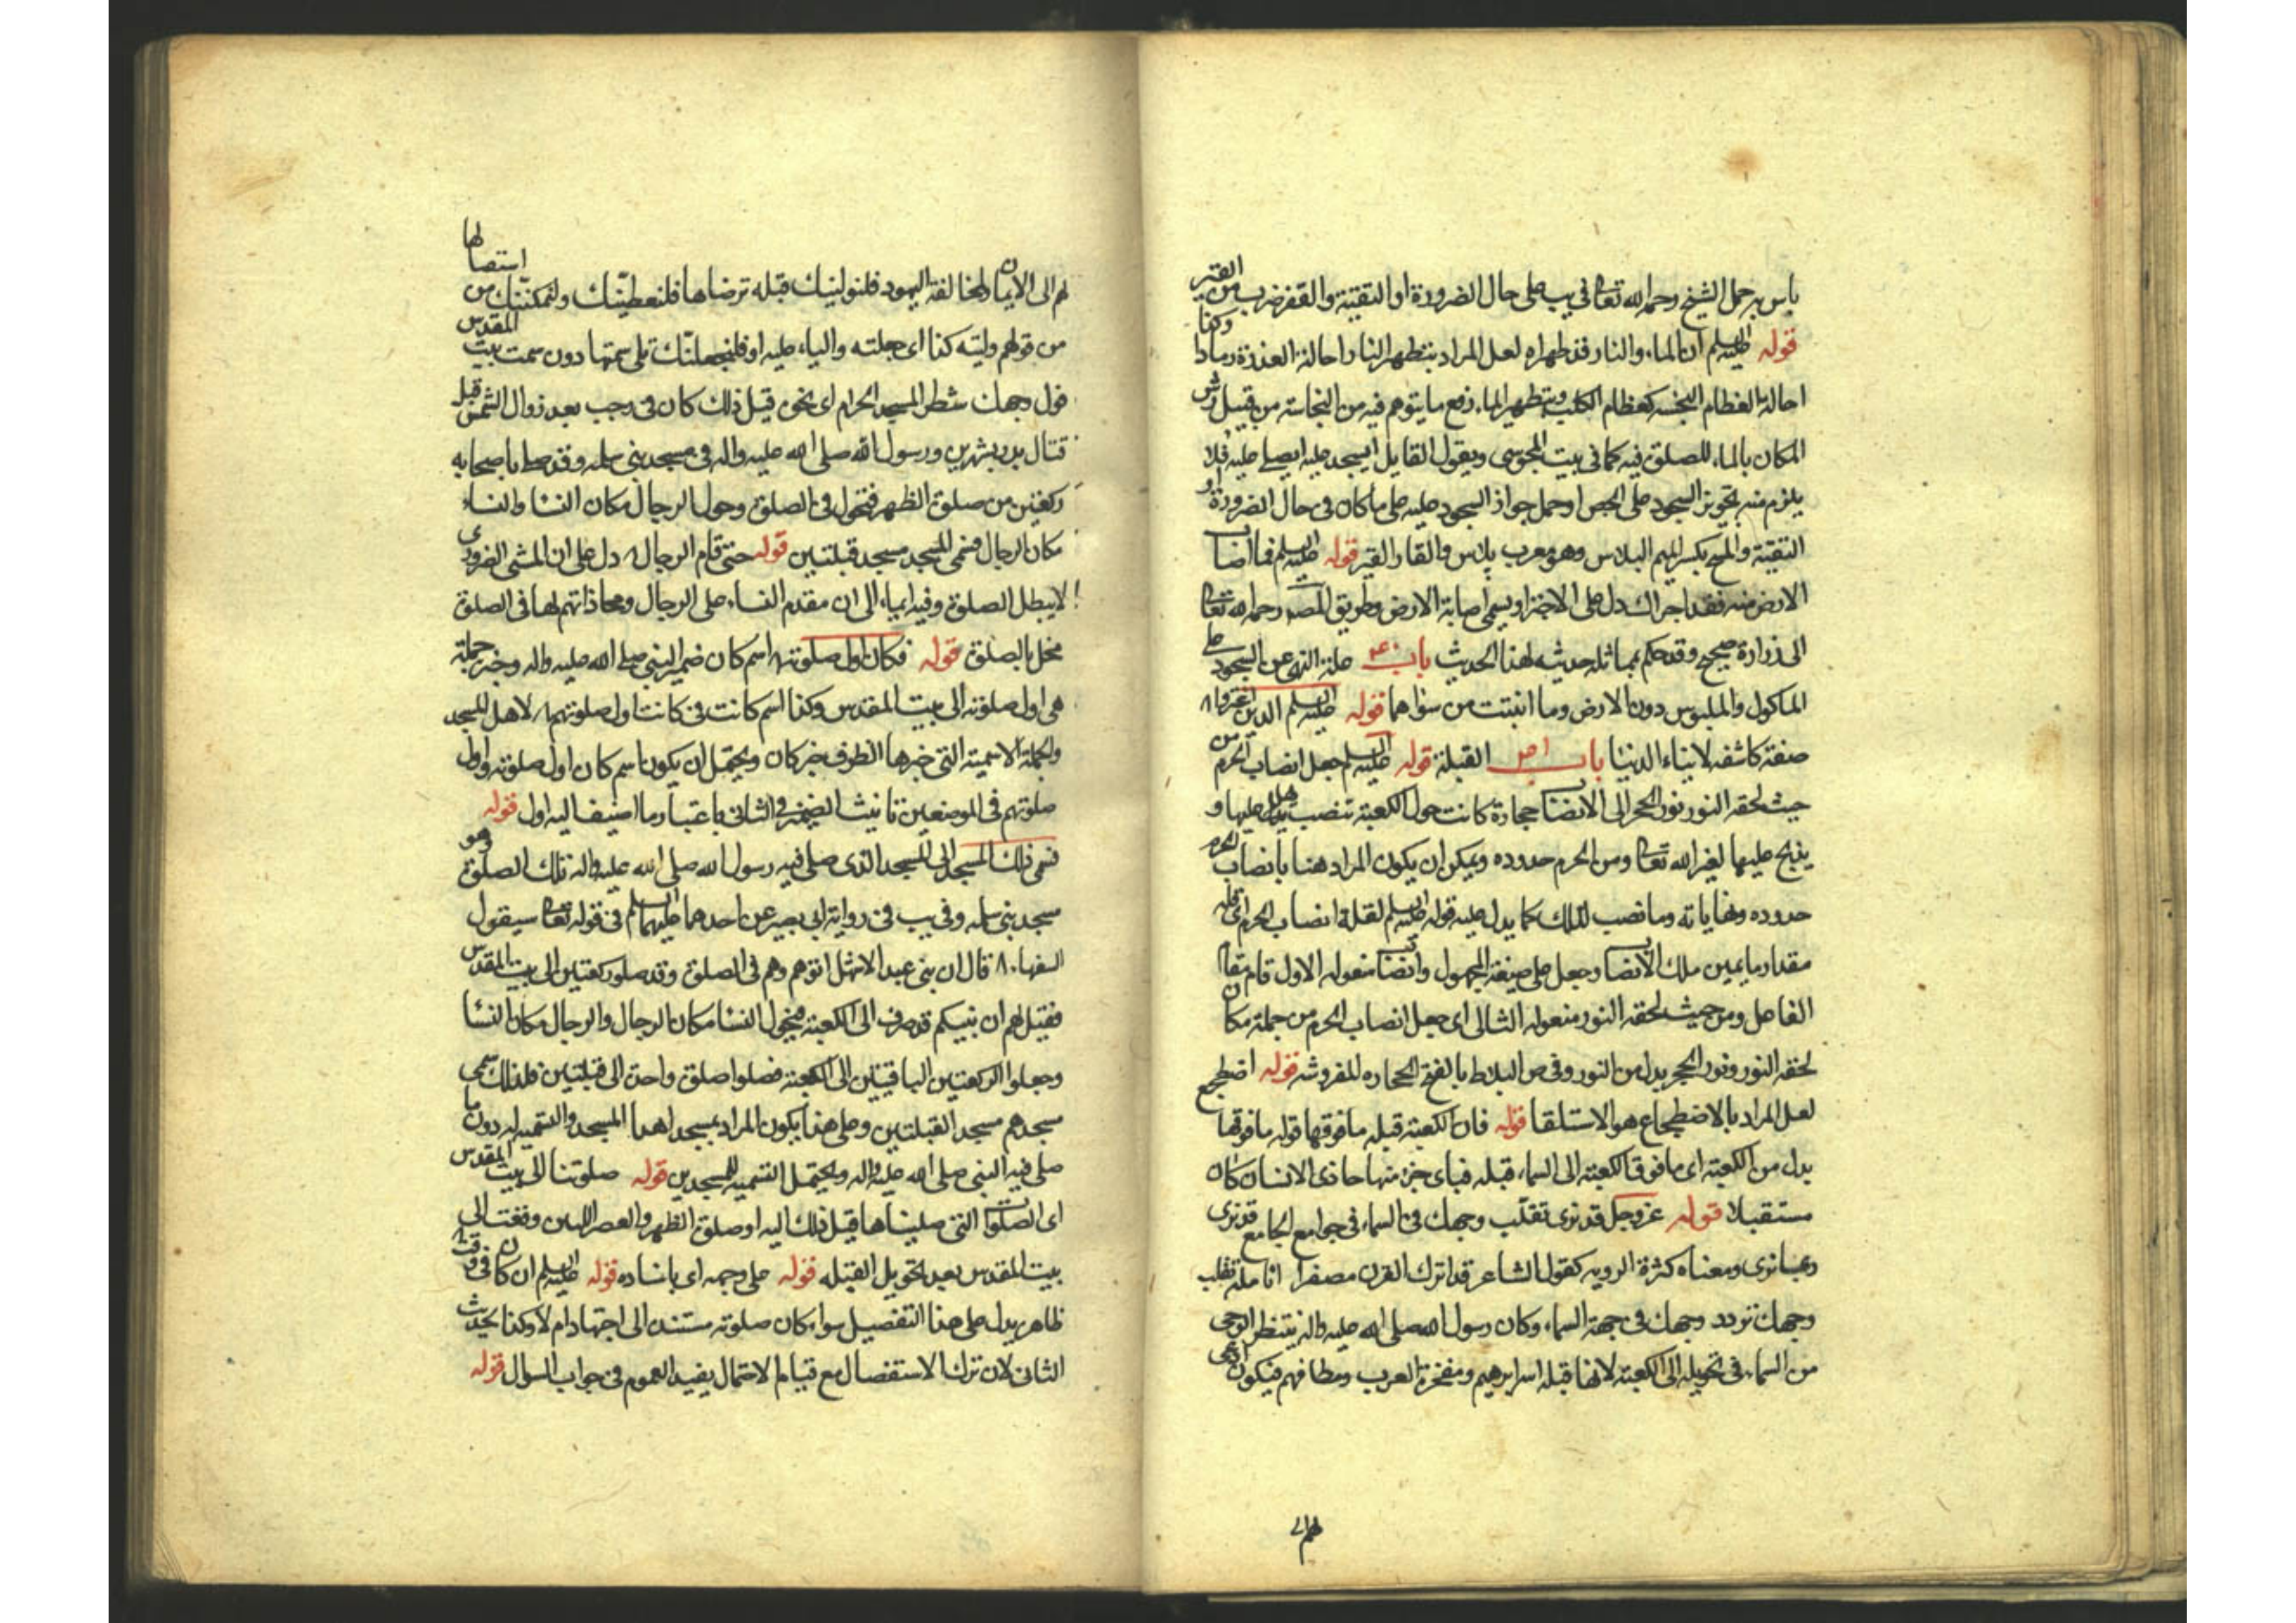 باس به حمل الشيخ رحمه الله تعالى في يب على حال الضرورة او التقيّة والقفر ضرب من القير
قوله عليه السلم ان الماء والنار قد طهراه لعل المراد بتطهير النار احالة العذرة رمادا وكذا
احالة العظام النجسه كعظام الكلب وبتطهير الماء رفع ما يتوهم فيه من النجاسة من قبيل رش
المكان بالماء للصلوة فيه كما في بيت المجوسي وبقول القايل ايسجد عليه ايصلى عليه فلا
يلزم منه تجويز السجود على الجص او حمل جواز السجود عليه على ما كان في حال الضرورة او
التقيّة والمسح بكسر الميم البلاس وهو معرب پلاس والقار القير قوله عليه السلم فما اصاب
الارض منه فقد اجزاك دل على الاجتزاء بمسمى اصابة الارض وطريق المصـ رحمه الله تعالى
الى زرارة صحيح وقد حكم بمماثلة حديثه لهذا الحديث باب علة النهى عن السجود على
الماكول والملبوس دون الارض وما انبتت من سواهما قوله عليه السلم الذين اغتروا
صفة كاشفه لابناء الدنيا باب القبلة قوله عليه السلم جعل انصاب الحرم من
حيث لحقه النور نور الحجر الى الانصاب حجارة كانت حول الكعبة تنصب فيهل عليها و
يذبح عليها لغير الله تعالى ومن الحرم حدوده ويمكن ان يكون المراد هنا بانصاب الحرم
حدوده ونهاياته وما نصب لذلك كما يدل عليه قوله عليه السلم لقلة انصاب الحرم اى قلة
مقدار ما يمين ملك الانصاب وجعل على صيغة المجهول وانصاب مفعوله الاول قام مقام
الفاعل ومن حيث لحقه النور مفعوله الثانى اى جعل انصاب الحرم من جملة مكان
لحقه النور ونور الحجر بدل من النور وفي ص البلاط بالفتح الحجاره المفروشه قوله اضطجع
لعل المراد بالاضطجاع هو الاستلقا قوله فان الكعبة قبله ما فوقها قوله ما فوقها
بدل من الكعبة اى ما فوق الكعبة الى السماء قبله فباى جزء منها حاذى الانسان كان
مستقبلا قوله عز وجل قد نرى تقلّب وجهك في السماء في جوامع الجامع قد نرى
ربما نرى ومعناه كثرة الرويه كقول الشاعر قد اترك القرن مصفرا انامله تقلب
وجهك تردد وجهك في جهة السماء وكان رسول الله صلى الله عليه واله ينتظر الوحى
من السماء في تحويله الى الكعبة لانها قبلة ابرهيم ومفخرة العرب ومطافهم فيكون ادعى
لهم الى
لهم الى الايمان ولمخالفة اليهود فلنولينك قبلة ترضاها فلنعطينّك ولنمكننّك من استقبالها
من قولهم وليته كذا اى جعلته واليا عليه او فلنجعلنّك تلى سمتها دون سمت بيت المقدس
فول وجهك شطر المسجد الحرام اى نحوه قيل ذلك كان في رجب بعد زوال الشمس قبل
قتال بدر بشهرين ورسول الله صلى الله عليه واله في مسجد بني سلمه وقد صلى باصحابه
ركعتين من صلوة الظهر فتحول في الصلوة وحول الرجال مكان النسا والنساء
مكان الرجال فسمى المسجد مسجد قبلتين قوله حتى قام الرجال دل على ان المشى الضرورى
لا يبطل الصلوة وفيه ايماء الى ان مقدم النساء على الرجال ومحاذاتهم لها في الصلوة
مخل بالصلوة قوله فكان اول صلوته اسم كان ضمير النبي صلى الله عليه واله وخبره جملة
هى اول صلوته الى بيت المقدس وكذا اسم كانت في كانت اول صلوتهم لاهل المسجد
والجملة الاسمية التى خبرها الظرف خبر كان ويحتمل ان يكون اسم كان اول صلوته واول
صلوتهم في الموضعين تانيث الضمير في الثانى باعتبار ما اضيف اليه اول قوله
فسمى ذلك المسجد الى المسجد الذى صلى فيه رسول الله صلى الله عليه واله تلك الصلوة وهو
مسجد بني سلمه وفي يب في رواية ابى بصير عن احدهما عليهما السلم في قوله تعالى سيقول
السفهاء قال ان بني عبد الاشهل اتوهم وهم في الصلوة وقد صلو ركعتين الى بيت المقدس
فقيل لهم ان نبيكم قد صرف الى الكعبة فتحول النسا مكان الرجال والرجال مكان النسا
وجعلوا الركعتين الباقيتين الى الكعبة فصلوا صلوة واحدة الى قبلتين فلذلك سمى
مسجدهم مسجد القبلتين وعلى هذا يكون المراد بمسجد اهذا المسجد والتسميه له دون ما
صلى فيه النبي صلى الله عليه واله ويحتمل التسميه للمسجدين قوله صلوتنا الى بيت المقدس
اى الصلوات التى صليناها قبل ذلك اليه او صلوة الظهر والعصر اللتين وقعت الى
بيت المقدس بعد تحويل القبله قوله على وجهه اى باسناده قوله عليه السلم ان كان في وقت
ظاهر يدل على هذا التفصيل سواء كان صلوته مستند الى اجتهاد ام لا وكذا الحديث
الثانى لان ترك الاستفصال مع قيام الاحتمال يفيد العموم في جواب السوال قوله